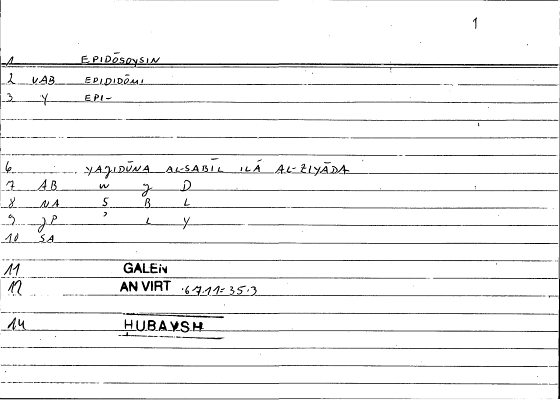 1
1 EPIDŌSOYSIN
2 VAB EPIDIDŌMI
3 Y EPI-
6 YAJIDŪNA AL-SABĪL ILÁ AL-ZIYĀDA
7 AB W J D
8 NA S B L
9 JP ʾ L Y
10 SA
11 GALEN
12 AN VIRT 6.7.11-35.3
14 HUBAYSH